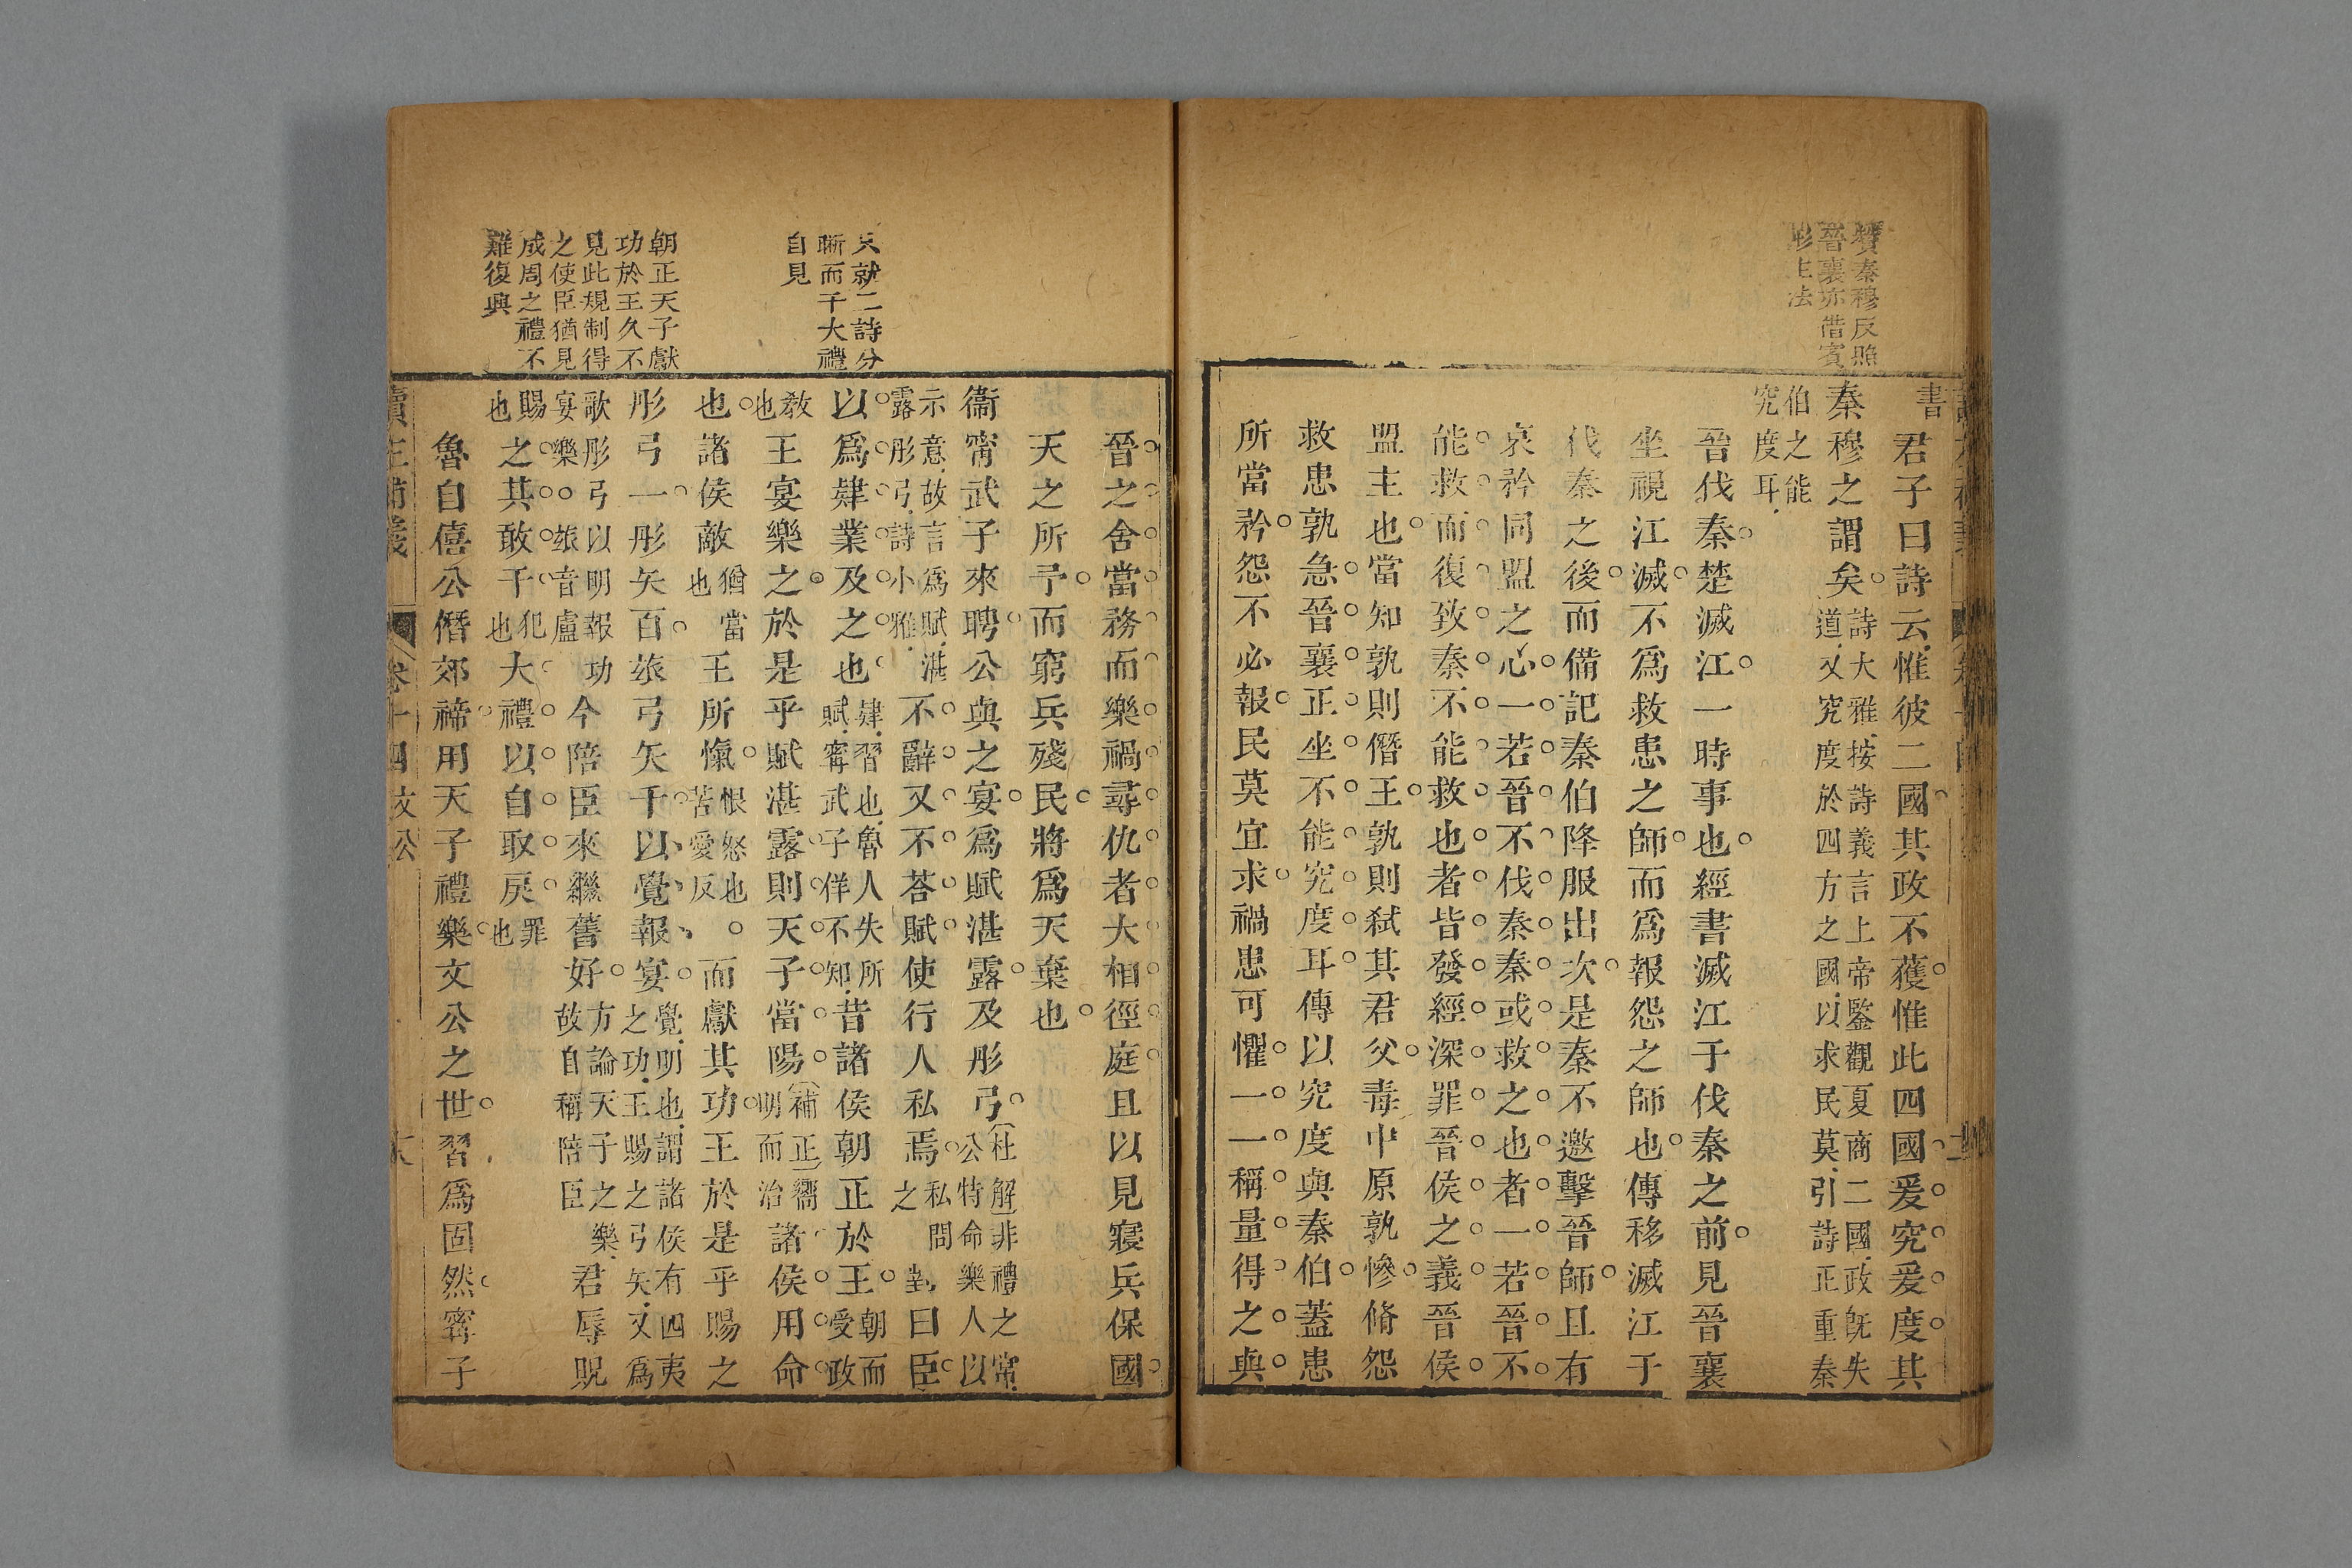 贊秦穆反照
晉襄亦借賓
形主法
書
君子曰詩云惟彼二國其政不獲惟此四國爰究爰度其
秦穆之謂矣
詩大雅按詩義言上帝鑒觀夏商二國政旣失
道又究度於四方之國以求民莫引詩正重秦
伯之能
究度耳
晉伐秦楚滅江一時事也經書滅江于伐秦之前見晉襄
坐視江滅不爲救患之師而爲報怨之師也傳移滅江于
伐秦之後而備記秦伯降服出次是秦不邀擊晉師且有
哀矜同盟之心一若晉不伐秦秦或救之也者一若晉不
能救而復致秦不能救也者皆發經深罪晉侯之義晉侯
盟主也當知孰則僭王孰則弑其君父毒中原孰慘脩怨
救患孰急晉襄正坐不能究度耳傳以究度與秦伯蓋患
所當矜怨不必報民莫宜求禍患可懼一一稱量得之與
天就二詩分
晰而干大禮
自見
朝正天子獻
功於王久不
見此規制得
之使臣猶見
成周之禮不
難復興
晉之舍當務而樂禍尋仇者大相徑庭且以見寢兵保國
天之所予而窮兵殘民將爲天棄也
衞甯武子來聘公與之宴爲賦湛露及彤弓
杜解非禮之常
公特命樂人以
示意故言爲賦湛
露彤弓詩小雅
不辭又不荅賦使行人私焉
私問
之
對曰臣
以爲肄業及之也
肄習也魯人失所
賦甯武子佯不知
昔諸侯朝正於王
朝而
受政
敎
也
王宴樂之於是乎賦湛露則天子當陽
補正嚮
明而治
諸侯用命
也諸侯敵
猶當
也
王所愾
恨怒也
苦愛反
而獻其功王於是乎賜之
彤弓一彤矢百玈弓矢千以覺報宴
覺明也謂諸侯有四夷
之功王賜之弓矢又爲
歌彤弓以明報功
宴樂玈音盧
今陪臣來繼舊好
方論天子之樂
故自稱陪臣
君辱貺
賜
也
之其敢干
犯
也
大禮以自取戾
罪
也
魯自僖公僭郊禘用天子禮樂文公之世習爲固然甯子
卷十四 文公